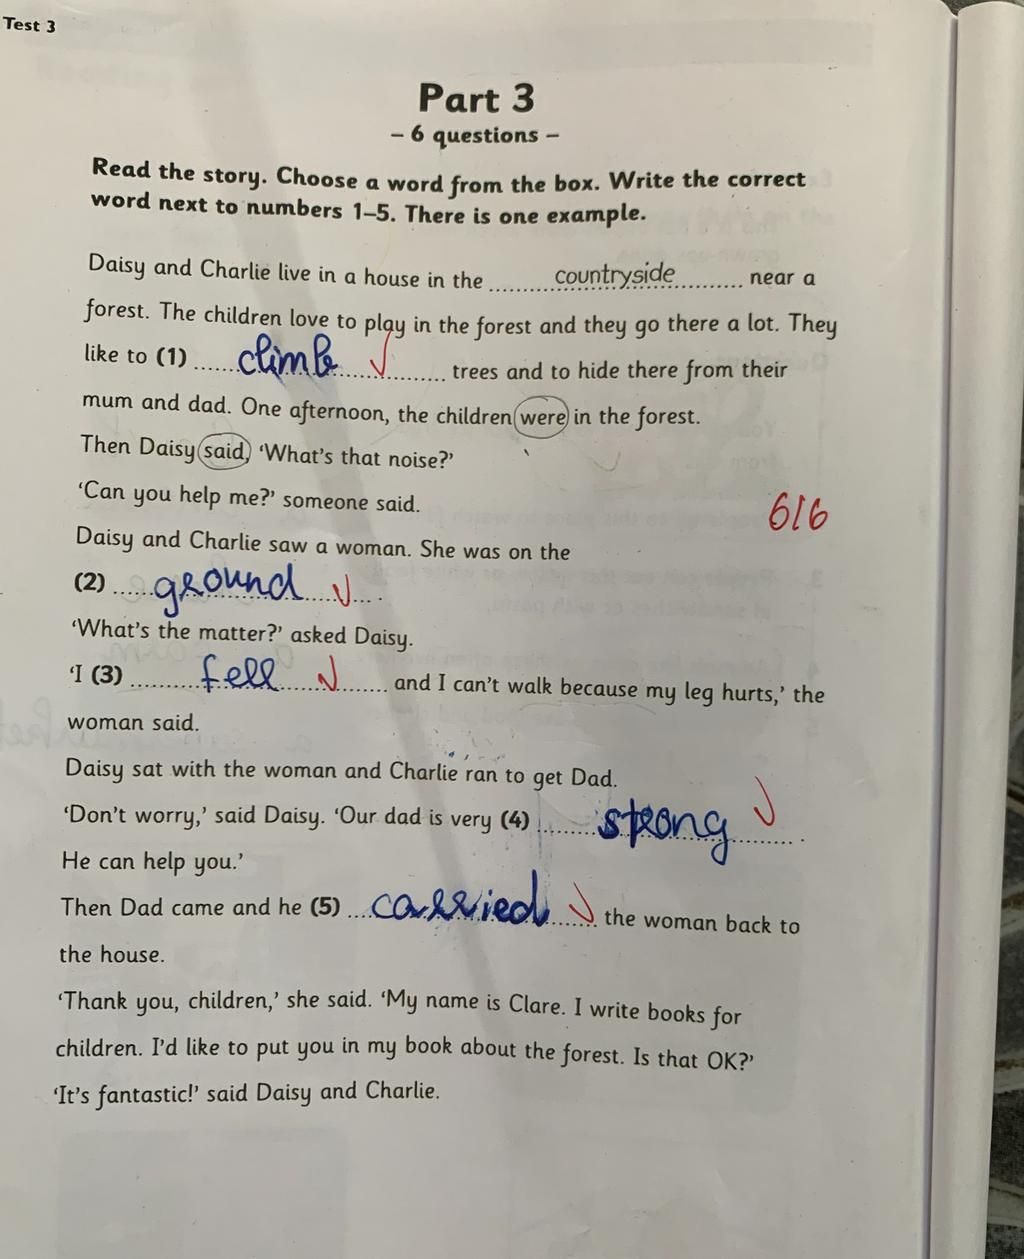 Test 3
Part 3
– 6 questions –
Read the story. Choose a word from the box. Write the correct
word next to numbers 1–5. There is one example.
Daisy and Charlie live in a house in the ......... countryside ......... near a
forest. The children love to play in the forest and they go there a lot. They
like to (1) ...... climb ......... trees and to hide there from their
mum and dad. One afternoon, the children were in the forest.
Then Daisy said, ‘What’s that noise?’
‘Can you help me?’ someone said.
6/6
Daisy and Charlie saw a woman. She was on the
(2) ...... ground ...... .
‘What’s the matter?’ asked Daisy.
‘I (3) ......... fell ......... and I can’t walk because my leg hurts,’ the
woman said.
Daisy sat with the woman and Charlie ran to get Dad.
‘Don’t worry,’ said Daisy. ‘Our dad is very (4) ......... strong ......... .
He can help you.’
Then Dad came and he (5) ... carried ......... the woman back to
the house.
‘Thank you, children,’ she said. ‘My name is Clare. I write books for
children. I’d like to put you in my book about the forest. Is that OK?’
‘It’s fantastic!’ said Daisy and Charlie.